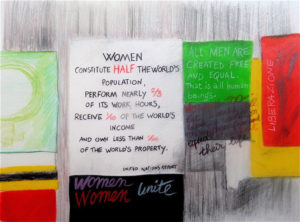 WOMEN
CONSTITUTE HALF THE WORLD'S
POPULATION,
PERFORM NEARLY 2/3
OF ITS WORK HOURS,
RECEIVE 1/10 OF THE WORLD'S
INCOME
AND OWN LESS THAN 1/100
OF THE WORLD'S PROPERTY.
UNITED NATIONS REPORT
Women
Women unite
ALL MEN ARE
CREATED FREE
AND EQUAL.
That is all human
beings.
their
LIBERAZIONE